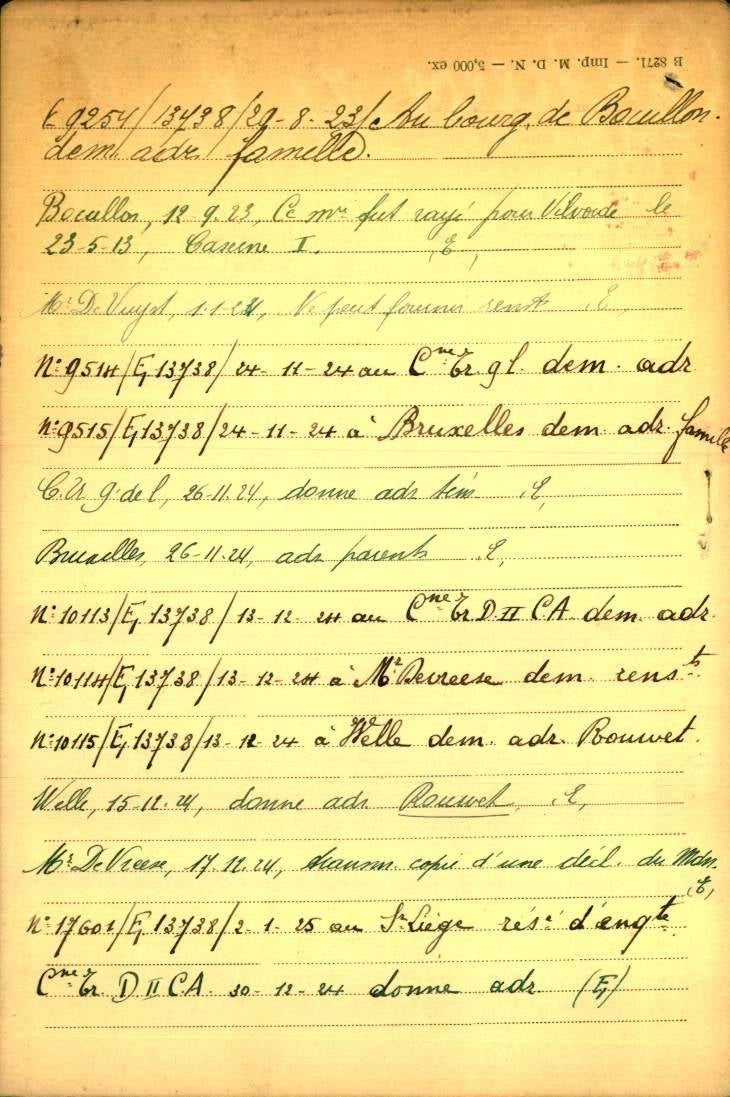 B 8271. — Imp. M. D. N. — 5,000 ex.
E 9254/13738/29-8-23/Au bourg. de Bouillon.
dem. adr. famille.
Bouillon, 12-9-23, Ce mre fut rayé pour Vilvorde le
23-5-13, Caserne I. E,
Mr De Vuyst, 1-1-24, Ne peut fournir rensts E,
No 9514/E, 13738/24-11-24 au Cne Tr. gl. dem. adr
No 9515/E, 13738/24-11-24 à Bruxelles dem. adr. famille
C. Tr. g. de l, 26-11-24, donne adr tém. E,
Bruxelles, 26-11-24, adr parents E,
No 10113/E, 13738/13-12-24 au Cne Tr D II CA dem. adr.
No 10114/E, 13738/13-12-24 à Mr Devreese dem. rensts
No 10115/E, 13738/13-12-24 à Welle dem. adr. Rouwet.
Welle, 15-12-24, donne adr. Rouwet, E,
Mr De Vreese, 17-12-24, transm. copie d'une décl. du Mdn.
E,
No 17601/E, 13738/2-1-25 au Sr Liège rést d'enqte
Cne Tr D II C.A. 30-12-24 donne adr. (E,)